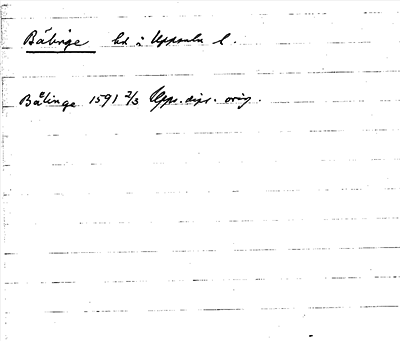 Bälinge hd i Uppsala l.
Bälinge 1591 2/3 Upps. dipl. orig.